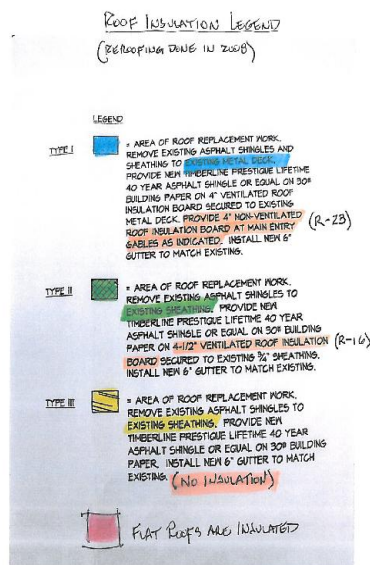 ROOF INSULATION LEGEND
(REROOFING DONE IN 2008)
LEGEND
TYPE I
= AREA OF ROOF REPLACEMENT WORK.
REMOVE EXISTING ASPHALT SHINGLES AND
SHEATHING TO EXISTING METAL DECK.
PROVIDE NEW TIMBERLINE PRESTIQUE LIFETIME
40 YEAR ASPHALT SHINGLE OR EQUAL ON 30#
BUILDING PAPER ON 4" VENTILATED ROOF
INSULATION BOARD SECURED TO EXISTING
METAL DECK. PROVIDE 4" NON-VENTILATED
ROOF INSULATION BOARD AT MAIN ENTRY
GABLES AS INDICATED. INSTALL NEW 6"
GUTTER TO MATCH EXISTING.
(R-23)
TYPE II
= AREA OF ROOF REPLACEMENT WORK.
REMOVE EXISTING ASPHALT SHINGLES TO
EXISTING SHEATHING. PROVIDE NEW
TIMBERLINE PRESTIQUE LIFETIME 40 YEAR
ASPHALT SHINGLE OR EQUAL ON 30# BUILDING
PAPER ON 4-1/2" VENTILATED ROOF INSULATION
BOARD SECURED TO EXISTING ¾" SHEATHING.
INSTALL NEW 6" GUTTER TO MATCH EXISTING.
(R-16)
TYPE III
= AREA OF ROOF REPLACEMENT WORK.
REMOVE EXISTING ASPHALT SHINGLES TO
EXISTING SHEATHING. PROVIDE NEW
TIMBERLINE PRESTIQUE LIFETIME 40 YEAR
ASPHALT SHINGLE OR EQUAL ON 30# BUILDING
PAPER. INSTALL NEW 6" GUTTER TO MATCH
EXISTING. (NO INSULATION)
FLAT ROOFS ARE INSULATED